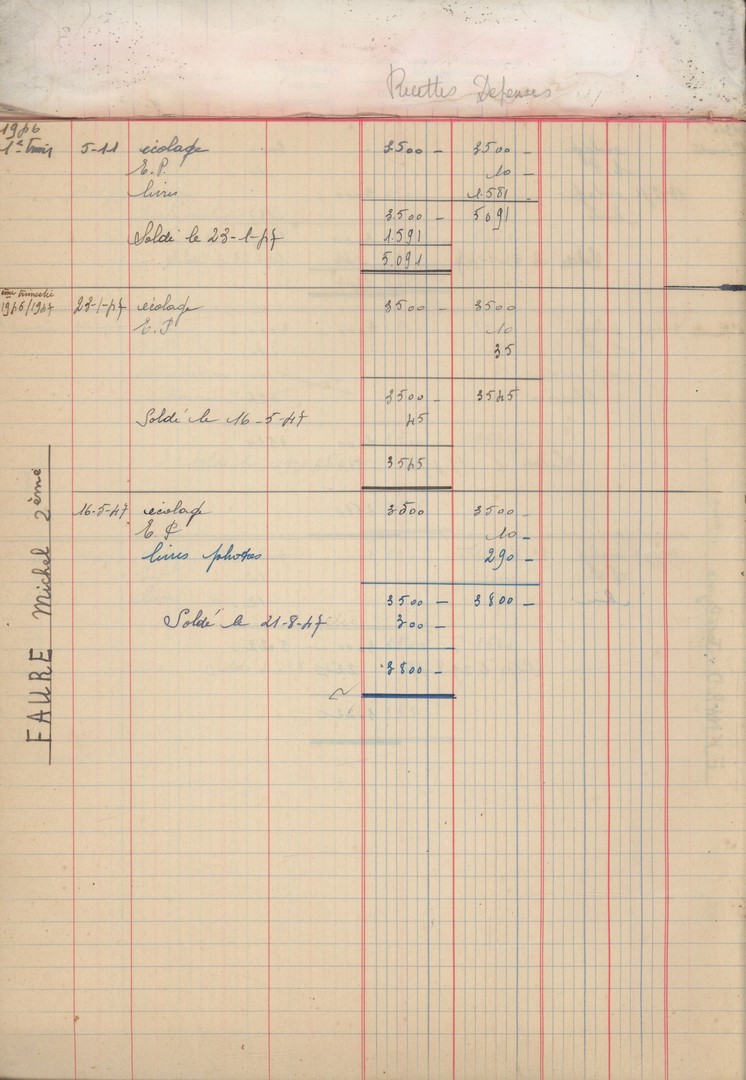 Recettes Dépenses
1946
1er Trim 5-11 écolage 3500 – 3500 –
E.P. 10 –
livres 1.581 –
3.500 – 5091
Soldé le 23-1-47 1.591
5.091
ème trimestre
1946/1947 23-1-47 écolage 3500 – 3500
E.P 10
35
3500 – 3545
Soldé le 16-5-47 45
3545
16-5-47 écolage 3500 3500 –
E.P 10 –
livres photos 290 –
3500 – 3800 –
Soldé le 21-8-47 300 –
3800 –
FAURE Michel 2ème